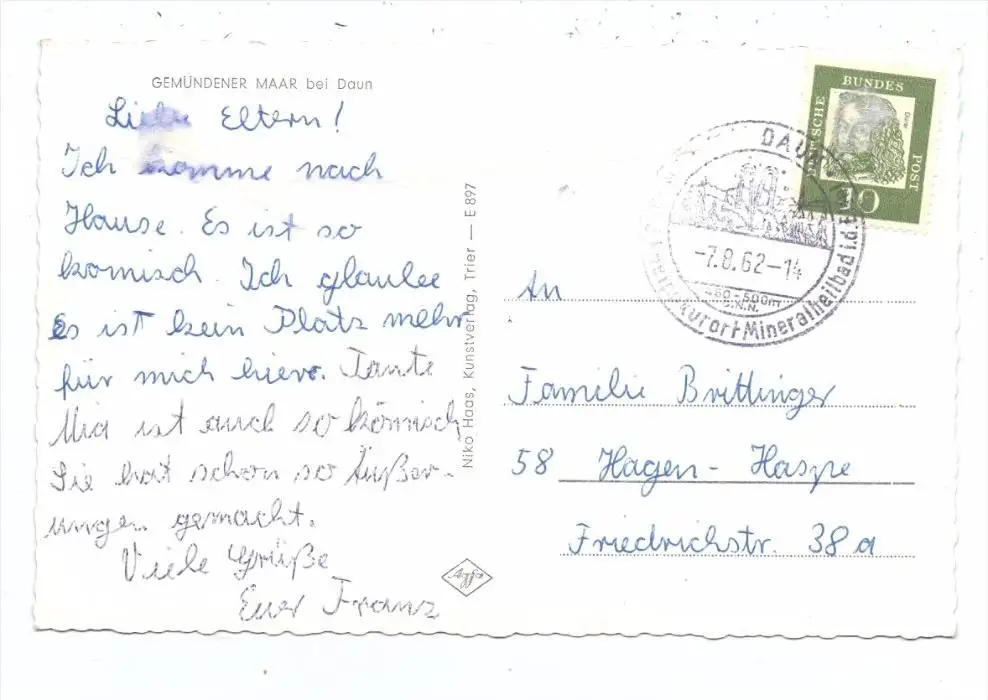 GEMÜNDENER MAAR bei Daun
Liebe Eltern!
Ich komme nach
Hause. Es ist so
komisch. Ich glaube
es ist kein Platz mehr
für mich hier. Tante
Mia ist auch so kömisch
Sie hat schon so Äußer-
ungen gemacht.
Viele Grüße
Euer Franz
Niko Haas, Kunstverlag, Trier — E 897
Agfa
DEUTSCHE
BUNDES
POST
Dürer
10
DAUN
-7.8.62-14
450-500m
ü.N.N.
Kurort-Mineralheilbad i.d. Eifel
An
Familie Brittinger
58 Hagen - Haspe
Friedrichstr. 38 a